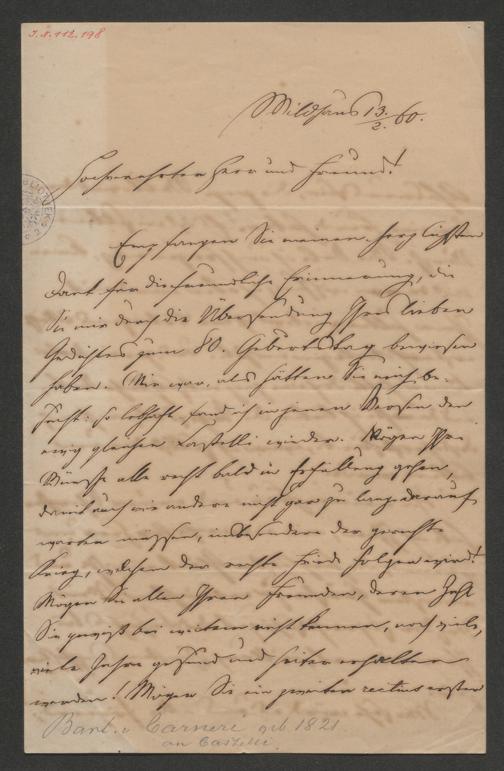 I.N. 112.198
Wildhaus 13./2. 60.
Hochverehrter Herr und Freund!
Empfangen Sie meinen herzlichsten
Dank für die freundliche Erinnerung, die
Sie mir durch die Übersendung Ihres lieben
Gedichtes zum 80. Geburtstag bewiesen
haben. Mir war, als hätten Sie mich be-
sucht: so lebhaft fand ich in jenen Versen den
ewig gleichen Castelli wieder. Mögen Ihre
Wünsche alle recht bald in Erfüllung gehen,
damit auch wir andere nicht gar zu lange darauf
warten müssen, insbesondere der gerechte
Krieg, welchem der rechte Friede folgen wird!
Mögen Sie allen Ihren Freunden, deren Zahl
Sie gewiß bei weitem nicht kennen, noch viele,
viele Jahre gesund und heiter erhalten
werden! Mögen Sie ein zweites rectius erstes
Barth. v Carneri geb 1821
an Castelli.